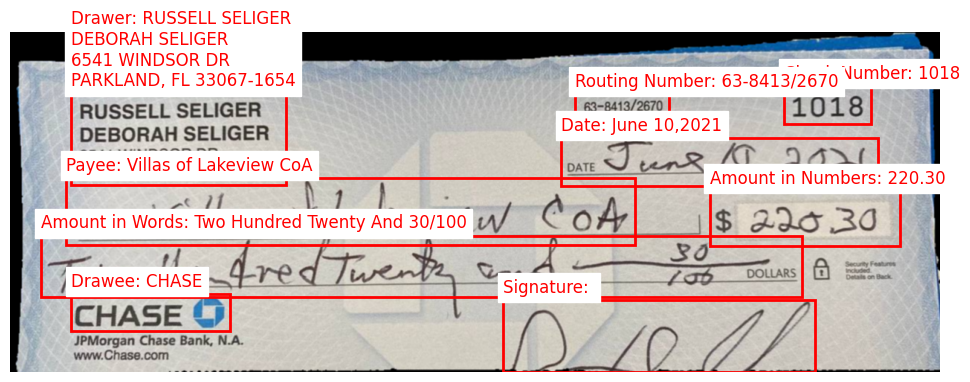 Drawer: RUSSELL SELIGER
DEBORAH SELIGER
6541 WINDSOR DR
PARKLAND, FL 33067-1654
Number: 1018
Routing Number: 63-8413/2670
RUSSELL SELIGER
DEBORAH SELIGER
63-8413/2670
1018
Date: June 10,2021
DATE June 10, 2021
Payee: Villas of Lakeview CoA
Amount in Numbers: 220.30
CoA
$ 220.30
Amount in Words: Two Hundred Twenty And 30/100
Two Hundred Twenty and 30/100 DOLLARS
Security Features
Included.
Details on Back.
Drawee: CHASE
Signature:
CHASE
JPMorgan Chase Bank, N.A.
www.Chase.com